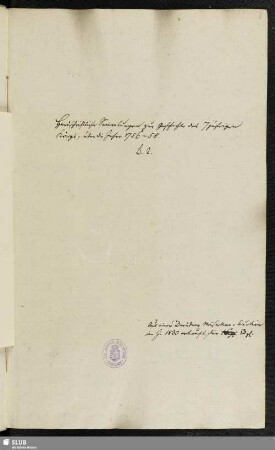 Handschriftliche Sammlungen zur Geschichte des 7jährigen
Kriegs, über die Jahre 1756–58.
B. 2.
Aus einer Dresdner
im J. 1830 erkauft, für
SLUB
Wir führen Wissen.